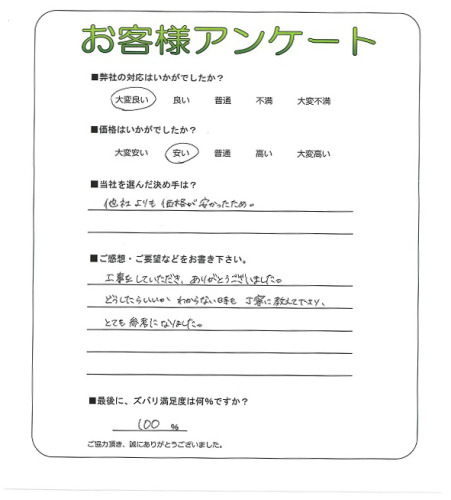 お客様アンケート
■弊社の対応はいかがでしたか？
大変良い　良い　普通　不満　大変不満
■価格はいかがでしたか？
大変安い　安い　普通　高い　大変高い
■当社を選んだ決め手は？
他社よりも価格が安かったため。
■ご感想・ご要望などをお書き下さい。
工事をしていただき、ありがとうございました。
どうしたらいいか わからない時も 丁寧に教えて下さり、
とても参考になりました。
■最後に、ズバリ満足度は何%ですか？
100 %
ご協力頂き、誠にありがとうございました。